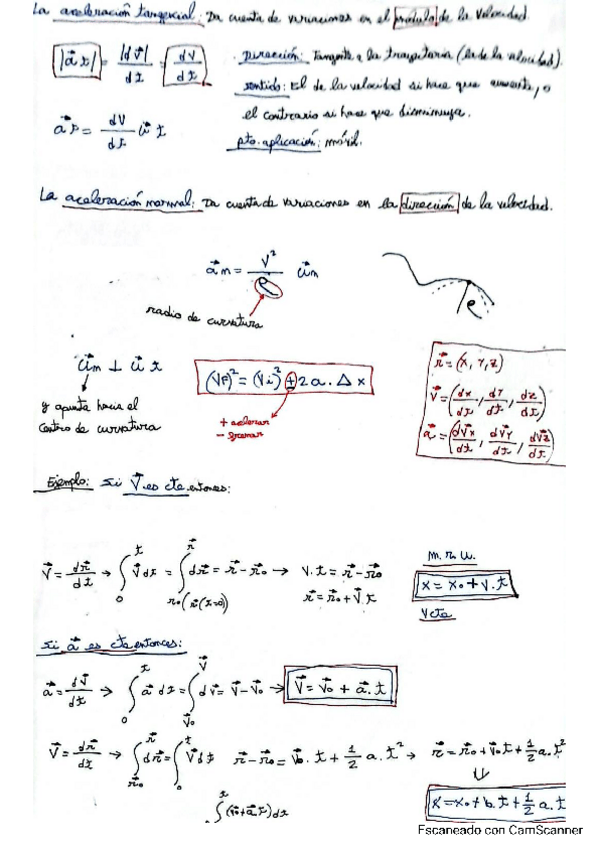 La aceleración tangencial: Da cuenta de variaciones en el módulo de la velocidad.
|a⃗t| = |dv⃗|/dt = dv/dt
Dirección: Tangente a la trayectoria (la de la velocidad).
sentido: El de la velocidad si hace que aumente, o
el contrario si hace que disminuya.
a⃗t = dv/dt u⃗t
pto. aplicación: móvil.
La aceleración normal: Da cuenta de variaciones en la dirección de la velocidad.
a⃗n = v²/ρ u⃗n
radio de curvatura
ρ
u⃗n ⊥ u⃗t
y apunta hacia el
centro de curvatura
(Vf)² = (Vi)² ± 2a · Δx
+ acelerar
- frenar
r⃗ = (x, y, z)
v⃗ = (dx/dt, dy/dt, dz/dt)
a⃗ = (dvx/dt, dvy/dt, dvz/dt)
Ejemplo: Si v⃗ es cte entonces:
v⃗ = dr⃗/dt → ∫₀ᵗ v⃗ dt = ∫ dr⃗ = r⃗ - r⃗₀ → v · t = r⃗ - r⃗₀
r₀ (r⃗(t=0))
r⃗ = r⃗₀ + v⃗ · t
m.r.u.
x = x₀ + v · t
v cte
Si a⃗ es cte entonces:
a⃗ = dv⃗/dt → ∫₀ᵗ a⃗ dt = ∫ dv⃗ = v⃗ - v⃗₀ → v⃗ = v⃗₀ + a⃗ · t
v⃗ = dr⃗/dt → ∫ dr⃗ = ∫ v⃗ dt r⃗ - r⃗₀ = v⃗₀ · t + 1/2 a · t² → r⃗ = r⃗₀ + v⃗₀ t + 1/2 a · t²
∫ (v⃗₀ + a⃗ t) dt
x = x₀ + v₀ t + 1/2 a · t
Escaneado con CamScanner